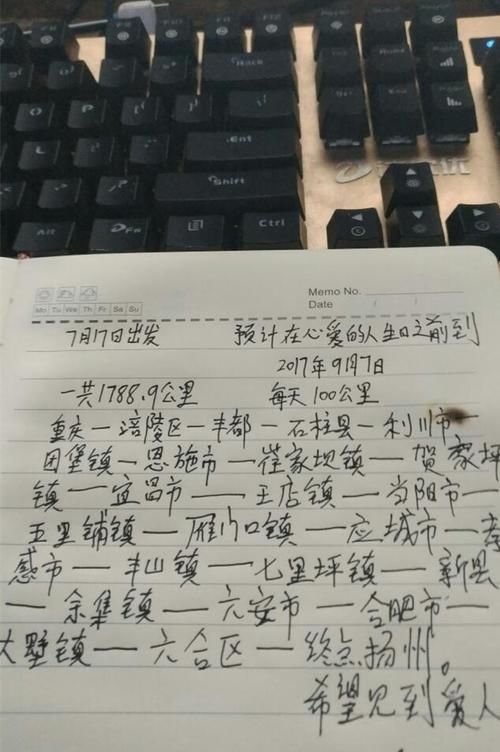 F8
F9
F10
F11
F12
Back
O
P
Ent
L
Shift
Alt
Fn
Ctrl
Mo Tu We Th Fr Sa Su
Memo No.
Date / /
7月17日出发 预计在心爱的人生日之前到
2017年9月7日
一共1788.9公里 每天100公里
重庆—涪陵区—丰都—石柱县—利川市—
团堡镇—恩施市—崔家坝镇—贺家坪
镇—宜昌市—王店镇—当阳市—
五里铺镇—雁门口镇—应城市—孝
感市—丰山镇—七里坪镇—新县
—余集镇—六安市—合肥市—
大墅镇—六合区—终点扬州。
希望见到爱人